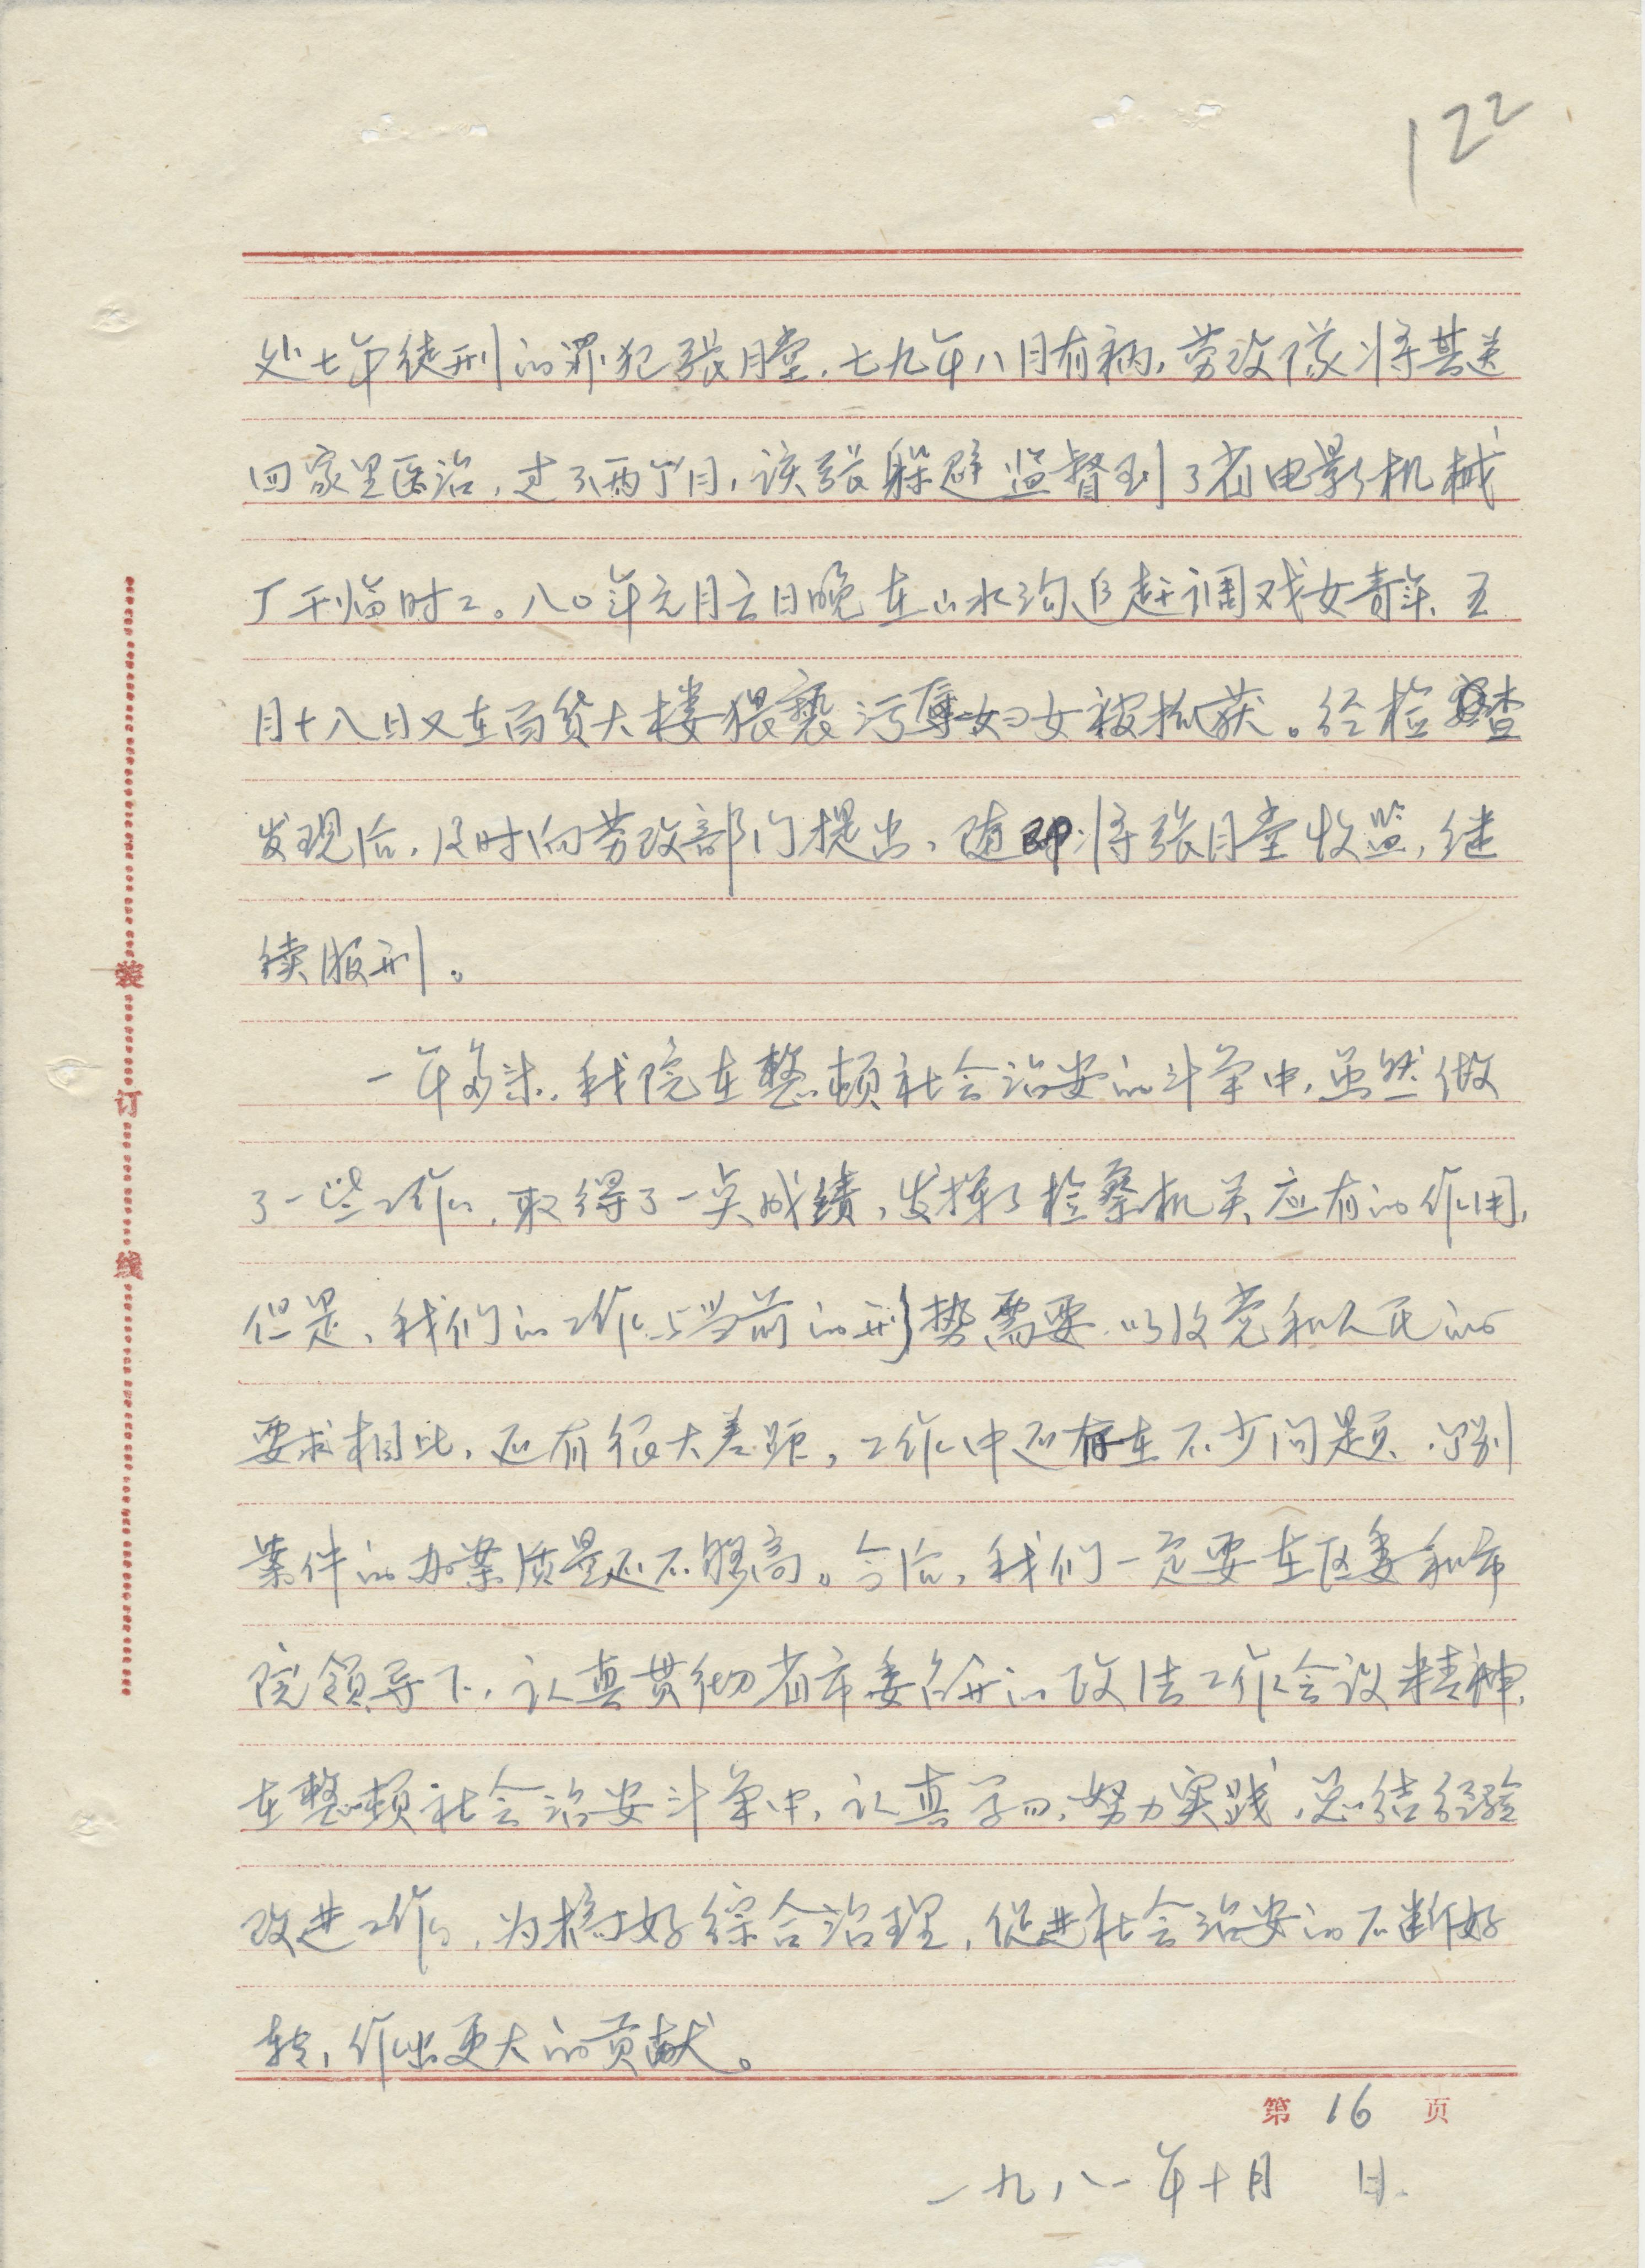 122
处七年徒刑的罪犯张月堂,七九年八月有病,劳改队将其送
回家里医治,过了两个月,该张躲避监督到了省电影机械
厂干临时工。八〇年元月 日晚在山水沟追赶调戏女青年、五
月十八日又在百货大楼猥亵污辱妇女被抓获。经检查
发现后,及时向劳改部门提出、随即将张月堂收监,继
续服刑。
一年多来,我院在整顿社会治安的斗争中,虽然做
了一些工作,取得了一点成绩,发挥了检察机关应有的作用,
但是、我们的工作与当前的形势需要以及党和人民的
要求相比,还有很大差距,工作中还存在不少问题、个别
案件的办案质量还不够高。今后,我们一定要在区委和市
院领导下,认真贯彻省市委召开的政法工作会议精神,
在整顿社会治安斗争中,认真学习,努力实践,总结经验
改进工作,为搞好综合治理,促进社会治安的不断好
转,作出更大的贡献。
第16页
一九八一年十月 日
装订线